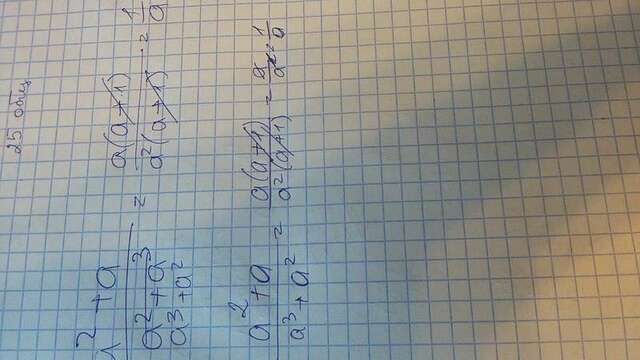 25 общ
² + a / a² + a³ = a(a+1) / a²(a+1) = 1/a
a³ + a²
a² + a / a³ + a² = a(a+1) / a²(a+1) = a/a² = 1/a